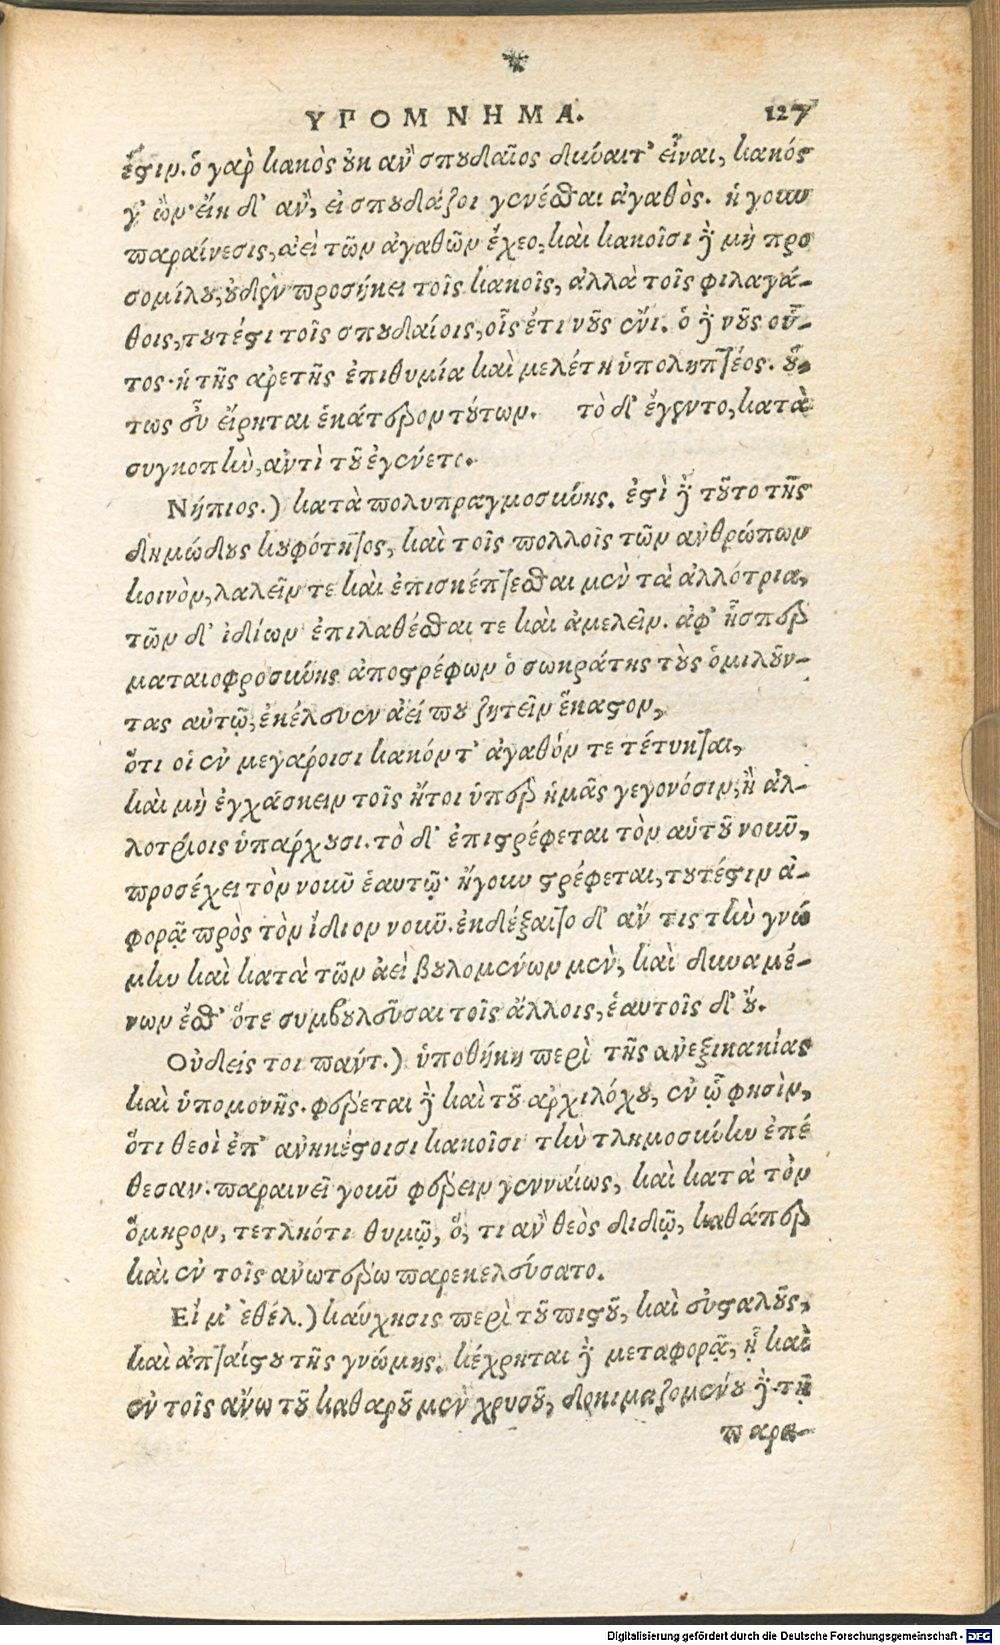 ΥΠΟΜΝΗΜΑ. 127
ἔστιν. ὁ γὰρ κακὸς οὐκ ἂν σπουδαῖος δύναιτ' εἶναι, κακός
γ' ὤν· εἴη δ' ἂν, εἰ σπουδάζοι γενέσθαι ἀγαθὸς. ἡ γοῦν
παραίνεσις, ἀεὶ τῶν ἀγαθῶν ἔχεο, καὶ κακοῖσι δὲ μὴ προ
σομίλου, οὐδὲν προσήκει τοῖς κακοῖς, ἀλλὰ τοῖς φιλαγά-
θοις, τουτέστι τοῖς σπουδαίοις, οἷς ἔτι νοῦς ἔνι. ὁ δὲ νοῦς οὗ-
τος· ἡ τῆς ἀρετῆς ἐπιθυμία καὶ μελέτη ὑποληπτέος. οὕ-
τως οὖν εἴρηται ἑκάτερον τούτων. τὸ δ' ἔγεντο, κατὰ
συγκοπὴν, ἀντὶ τοῦ ἐγένετο.
Νήπιος.) κατὰ πολυπραγμοσύνης. ἐστὶ δὲ τοῦτο τῆς
δημώδους κουφότητος, καὶ τοῖς πολλοῖς τῶν ἀνθρώπων
κοινὸν, λαλεῖν τε καὶ ἐπισκέπτεσθαι μὲν τὰ ἀλλότρια,
τῶν δ' ἰδίων ἐπιλαθέσθαι τε καὶ ἀμελεῖν. ἀφ' ἧσπερ
ματαιοφροσύνης ἀποστρέφων ὁ σωκράτης τοὺς ὁμιλοῦν-
τας αὐτῷ, ἐκέλευεν ἀεί που ζητεῖν ἕκαστον,
ὅτι οἱ ἐν μεγάροισι κακόν τ' ἀγαθόν τε τέτυκται,
καὶ μὴ ἐγχάσκειν τοῖς ἤτοι ὑπὲρ ἡμᾶς γεγονόσιν, ἢ ἀλ-
λοτρίοις ὑπάρχουσι. τὸ δ' ἐπιστρέφεται τὸν αὑτοῦ νοῦν,
προσέχει τὸν νοῦν ἑαυτῷ· ἤγουν στρέφεται, τουτέστιν ἀ-
φορᾷ πρὸς τὸν ἴδιον νοῦν. ἐκδέξαιτο δ' ἄν τις τὴν γνώ
μην καὶ κατὰ τῶν ἀεὶ βουλομένων μὲν, καὶ δυναμέ-
νων ἔσθ' ὅτε συμβουλεῦσαι τοῖς ἄλλοις, ἑαυτοῖς δ' οὔ.
Οὐδείς τοι πάντ.) ὑποθήκη περὶ τῆς ἀνεξικακίας
καὶ ὑπομονῆς. φέρεται δὲ καὶ τοῦ ἀρχιλόχου, ἐν ᾧ φησὶν,
ὅτι θεοὶ ἐπ' ἀνηκέστοισι κακοῖσι τὴν τλημοσύνην ἐπέ
θεσαν. παραινεῖ γοῦν φέρειν γενναίως, καὶ κατὰ τὸν
ὅμηρον, τετληότι θυμῷ, ὅ, τι ἂν θεὸς διδῷ, καθάπερ
καὶ ἐν τοῖς ἀνωτέρω παρεκελεύσατο.
Εἴ μ' ἐθέλ.) καύχησις περὶ τοῦ πιστοῦ, καὶ εὐσταλοῦς,
καὶ ἀπταίστου τῆς γνώμης. κέχρηται δὲ μεταφορᾷ, ᾗ καὶ
ἐν τοῖς ἄνω τοῦ καθαροῦ μὲν χρυσοῦ, δοκιμαζομένου δὲ τῇ
παρα-
Digitalisierung gefördert durch die Deutsche Forschungsgemeinschaft - DFG